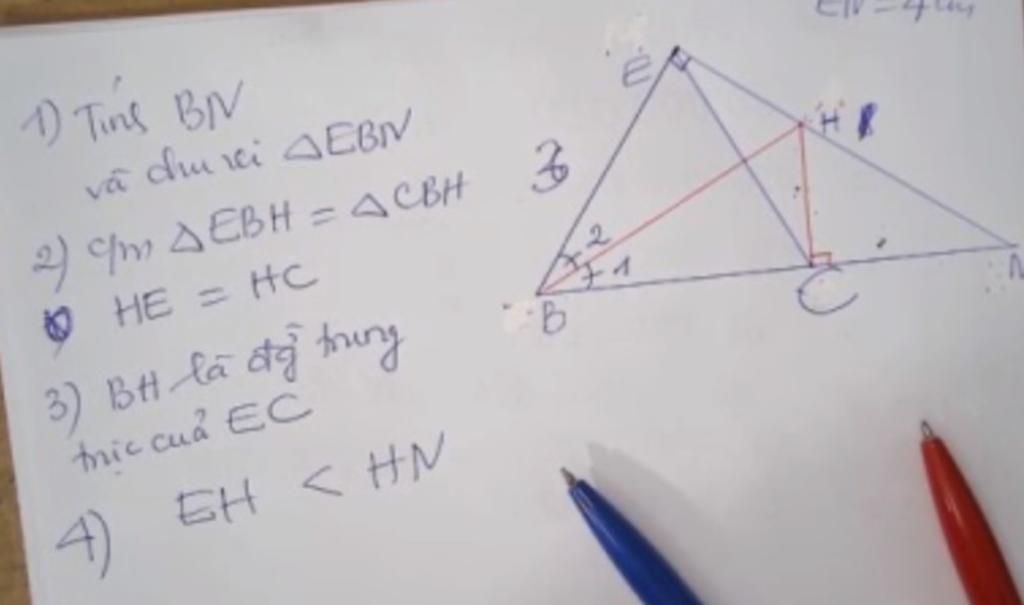 EN = 4cm
1) Tính BN
và chu vi △EBN
2) c/m △EBH = △CBH
HE = HC
3) BH là đg trung
trực của EC
4) EH < HN
E
H
3
2
1
B
C
N